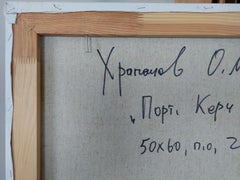 Храпачов О.М
"Порт. Керч
50х60, п.о, 2